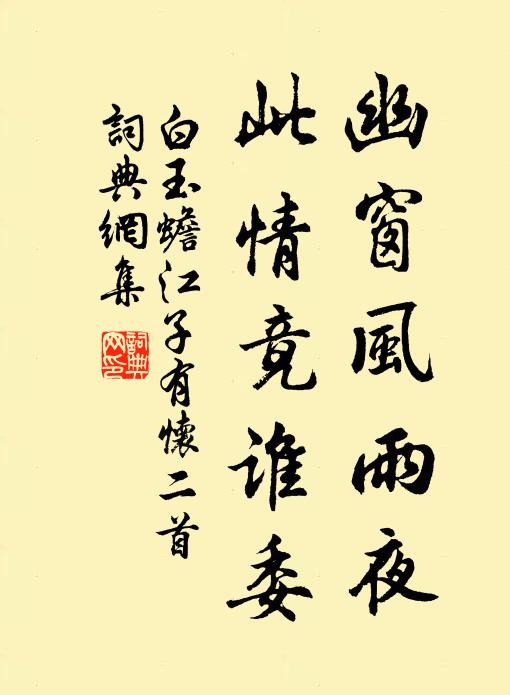 幽窗風雨夜
此情竟誰委
白玉蟾江子有懷二首
詞典網集
詞典網印